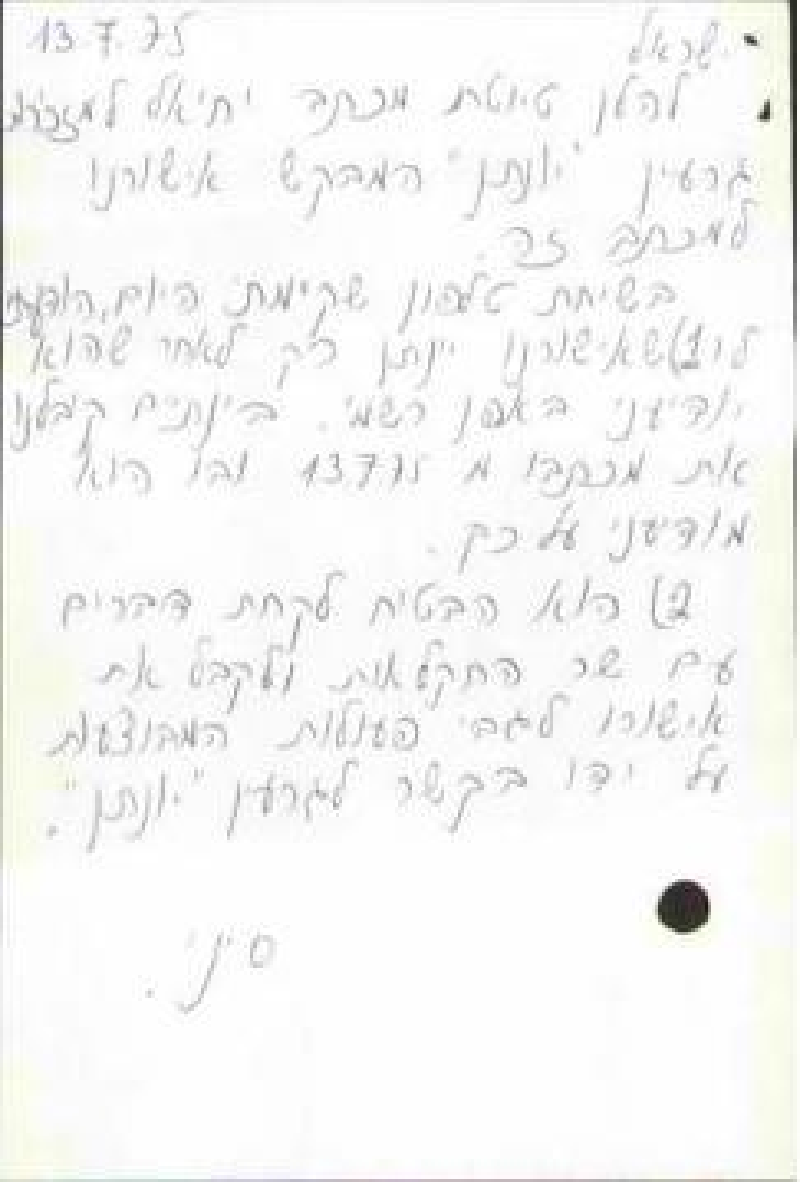 13.7.75
ישראל
להלן טיוטת מכתב יחיאל למזכירות
גרעין "יונתן" המבקש אישורנו
למכתב זה.
בשיחת טלפון שקימתי היום, הודעתי
לו 1) שאישורנו יינתן רק לאחר שהוא
יודיעני באפן רשמי. בינתים קיבלנו
את מכתבו מ 13.7.75 ובו הוא
מודיעני על כך.
2) הוא הבטיח לקחת דברים
עם שר החקלאות ולקבל את
אישורו לגבי פעולות המבוצעות
על ידו בקשר לגרעין "יונתן".
סיני.